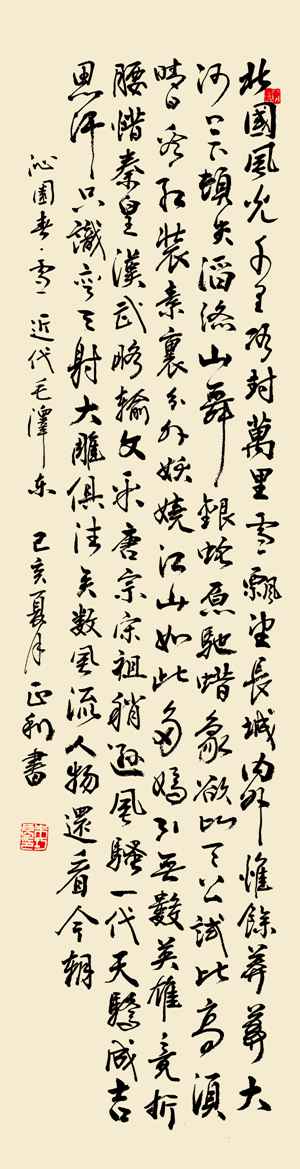 北國風光千里冰封萬里雪飄望長城内外惟餘莽莽大
河上下頓失滔滔山舞銀蛇原馳蜡象欲与天公試比高須
晴日看红裝素裹分外妖嬈江山如此多嬌引无數英雄競折
腰惜秦皇漢武略輸文采唐宗宋祖稍遜風騷一代天驕成吉
思汗只識彎弓射大雕俱往矣数風流人物還看今朝
沁園春·雪 近代毛澤东 己亥夏月正利書